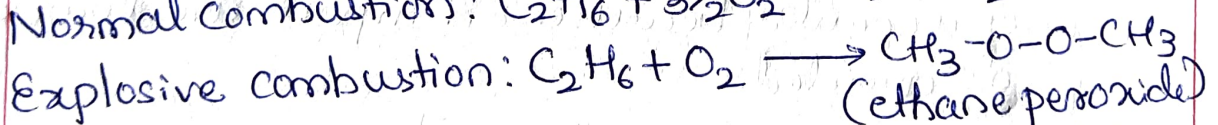 Normal combustion: C2H6 + 5/2 O2
Explosive combustion: C2H6 + O2 ⟶ CH3-O-O-CH3
(ethane peroxide)